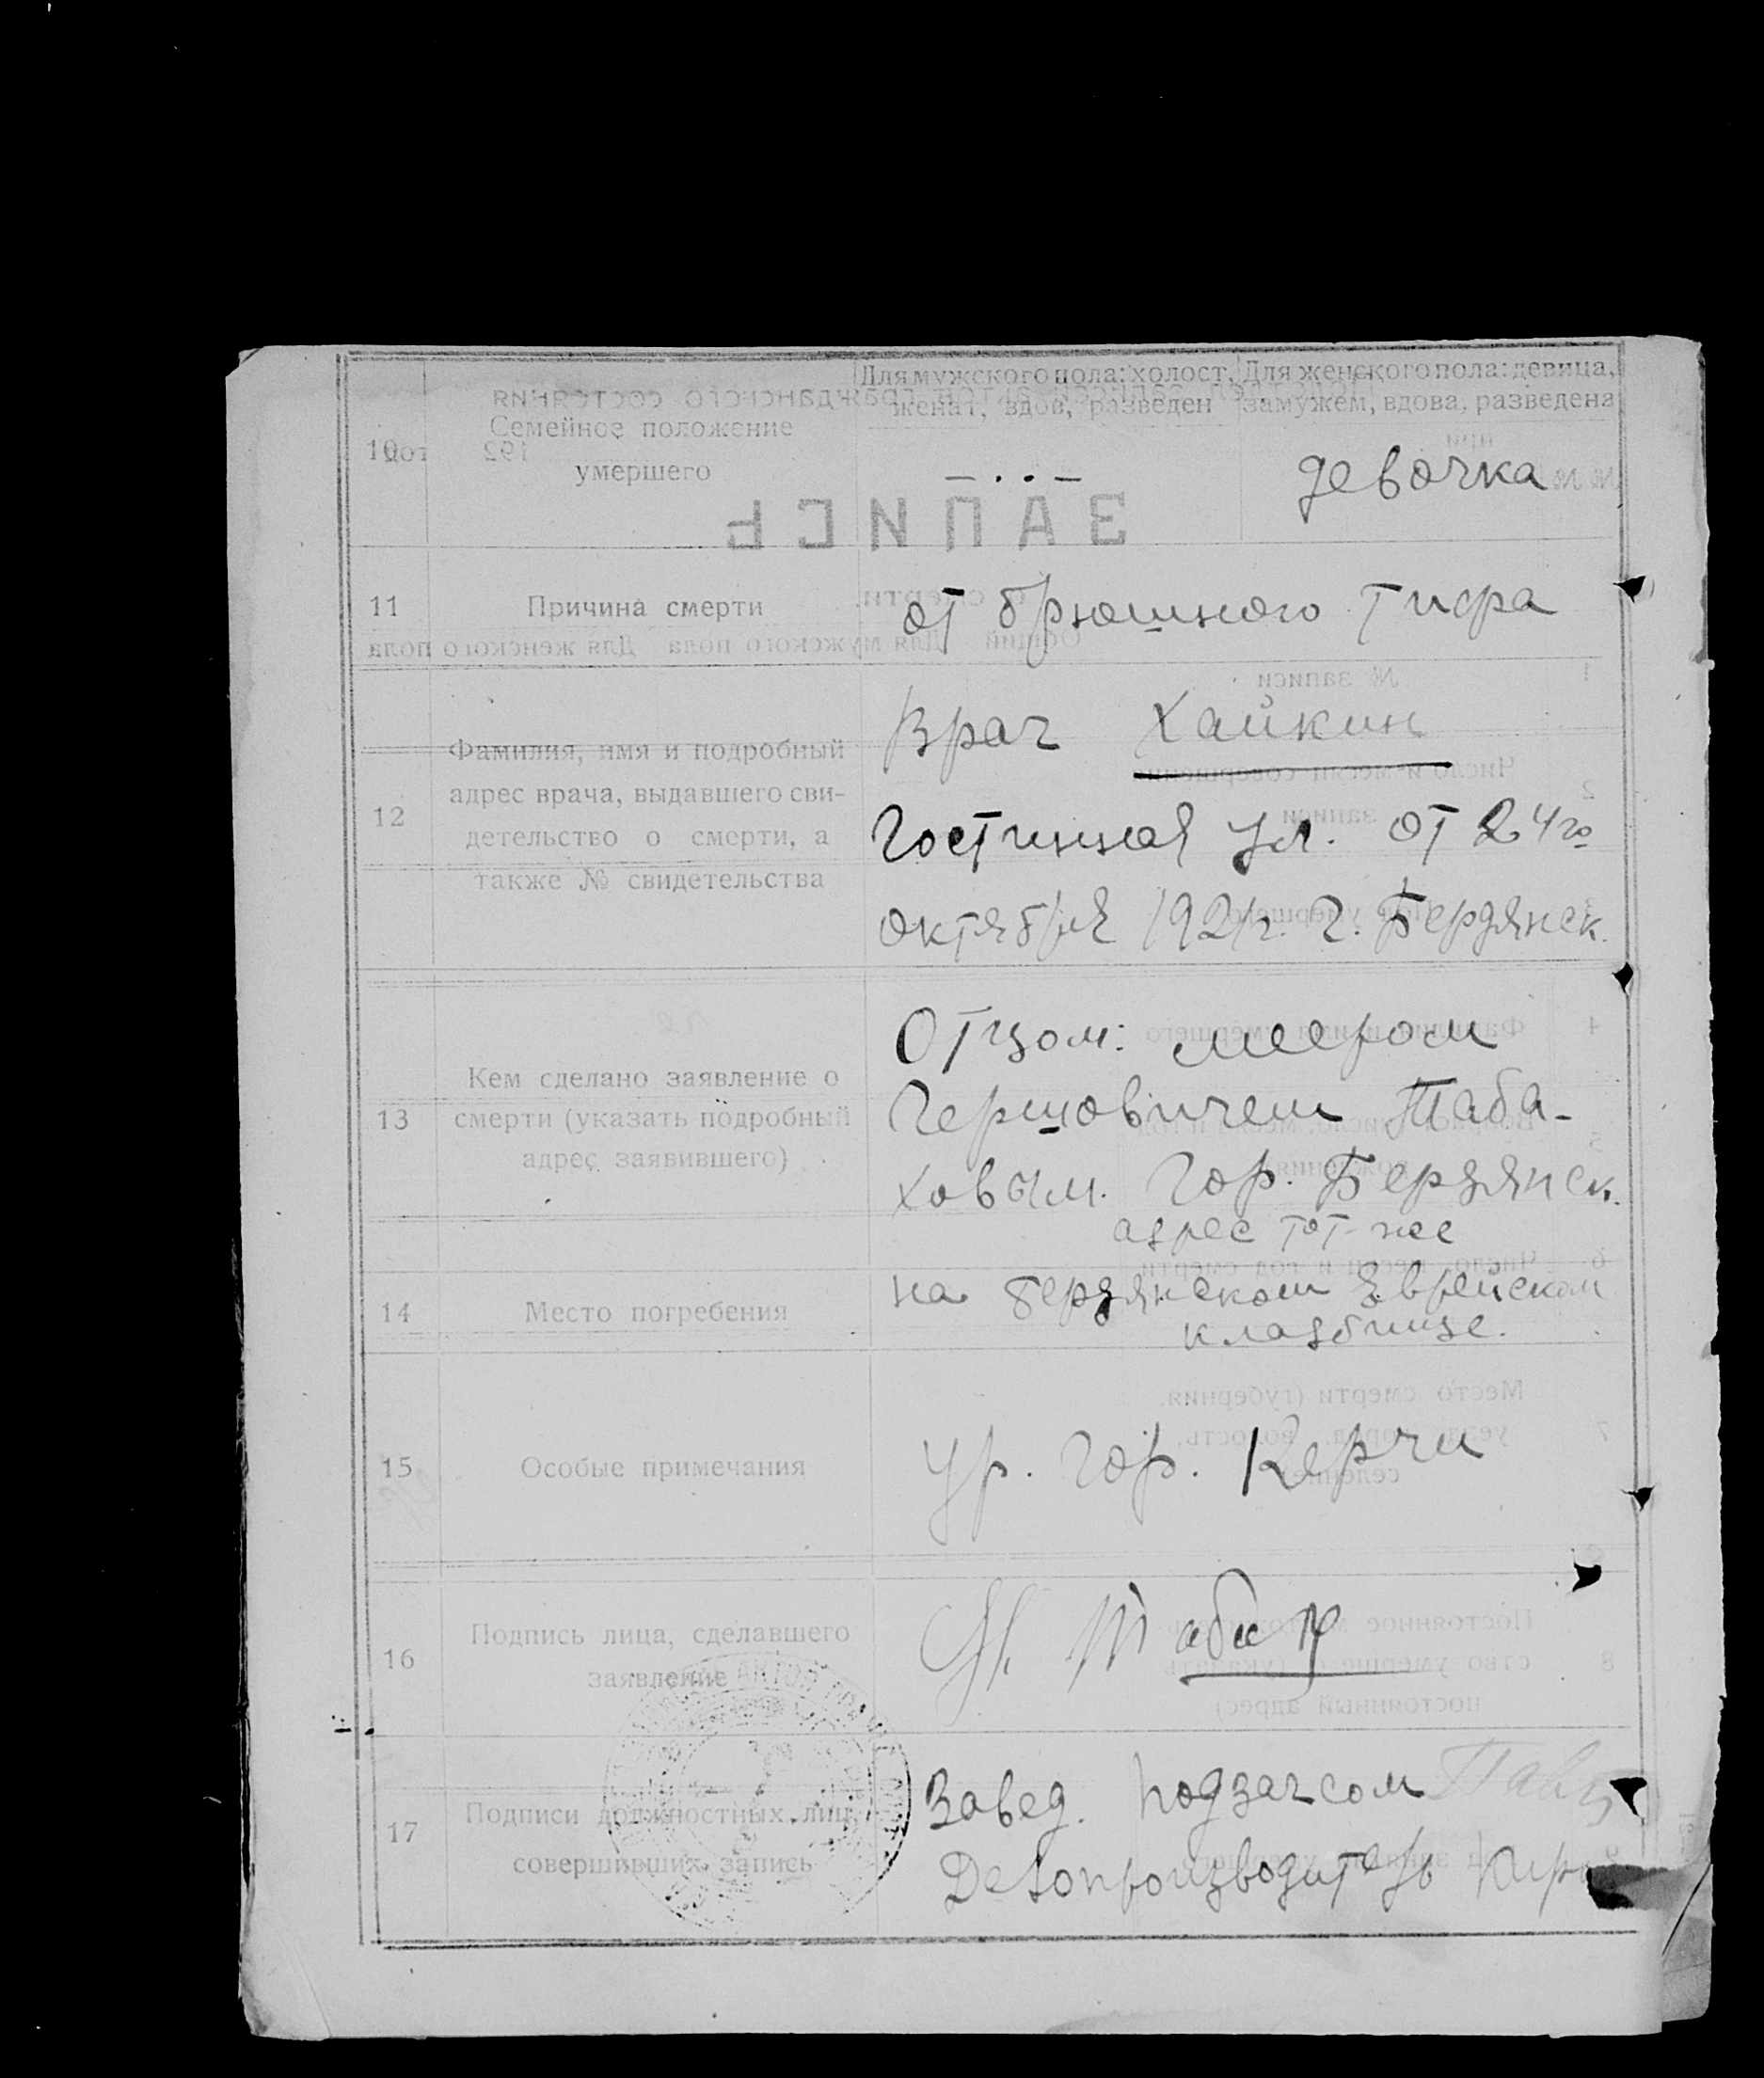 Для мужского пола: холост, женат, вдов, разведен
Для женского пола: девица, замужем, вдова, разведена
10
Семейное положение
умершего
— . . —
девочка
11
Причина смерти
от брюшного тифа
12
Фамилия, имя и подробный
адрес врача, выдавшего сви-
детельство о смерти, а
также № свидетельства
Врач Хайкин
Гостинная ул. от 24го
октября 1921г. г. Бердянск.
13
Кем сделано заявление о
смерти (указать подробный
адрес заявившего)
Отцом: Меером
Гершовичем Таба-
ховым. Гор. Бердянск.
адрес тот-же
14
Место погребения
на бердянском Еврейском
кладбище.
15
Особые примечания
ур. гор. Керчи
16
Подпись лица, сделавшего
заявление
17
Подписи должностных лиц,
совершивших запись
Завед. подзагсом
Делопроизводитель